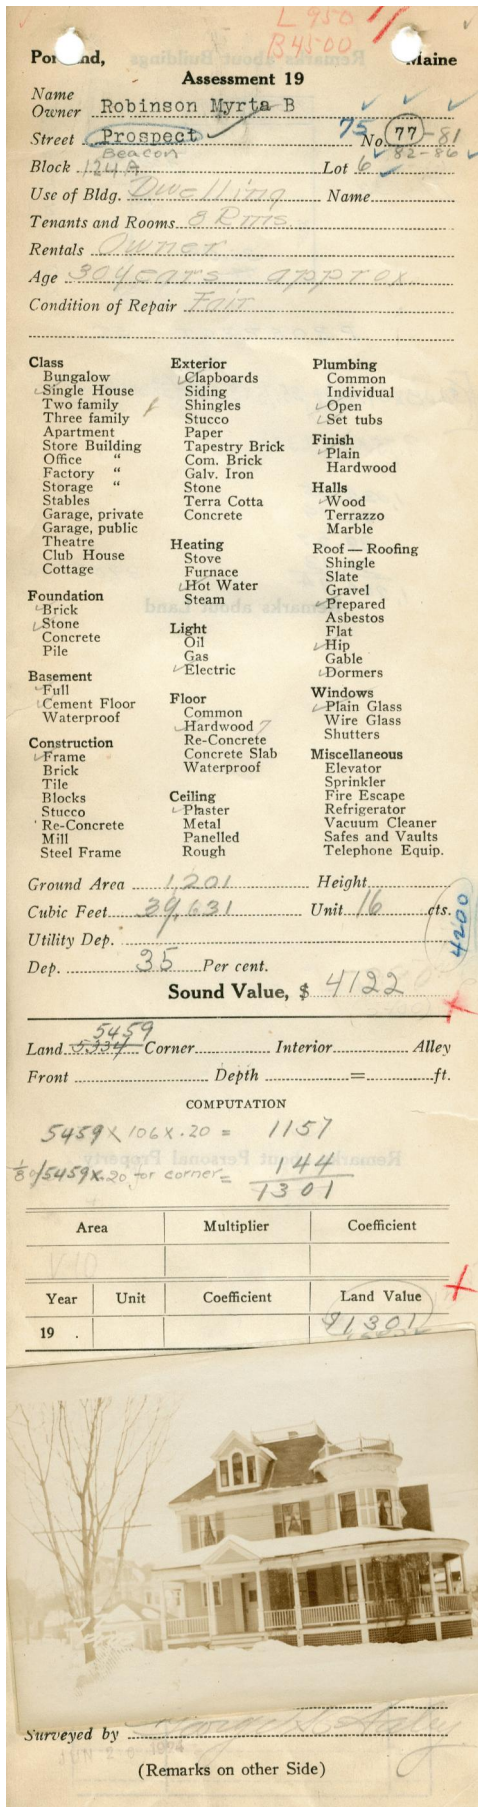 L 950
B 4500
Portland, Maine
Assessment 19
Name
Owner Robinson Myrta B
Street Prospect 75 No. 77-81
Beacon 82-86
Block 124A Lot 6
Use of Bldg. Dwelling Name
Tenants and Rooms 8 Rms
Rentals Owner
Age 30 years approx.
Condition of Repair Fair
Class
Bungalow
Single House
Two family
Three family
Apartment
Store Building
Office "
Factory "
Storage "
Stables
Garage, private
Garage, public
Theatre
Club House
Cottage
Foundation
Brick
Stone
Concrete
Pile
Basement
Full
Cement Floor
Waterproof
Construction
Frame
Brick
Tile
Blocks
Stucco
Re-Concrete
Mill
Steel Frame
Exterior
Clapboards
Siding
Shingles
Stucco
Paper
Tapestry Brick
Com. Brick
Galv. Iron
Stone
Terra Cotta
Concrete
Heating
Stove
Furnace
Hot Water
Steam
Light
Oil
Gas
Electric
Floor
Common
Hardwood 7
Re-Concrete
Concrete Slab
Waterproof
Ceiling
Plaster
Metal
Panelled
Rough
Plumbing
Common
Individual
Open
Set tubs
Finish
Plain
Hardwood
Halls
Wood
Terrazzo
Marble
Roof — Roofing
Shingle
Slate
Gravel
Prepared
Asbestos
Flat
Hip
Gable
Dormers
Windows
Plain Glass
Wire Glass
Shutters
Miscellaneous
Elevator
Sprinkler
Fire Escape
Refrigerator
Vacuum Cleaner
Safes and Vaults
Telephone Equip.
Ground Area 1,201 Height
Cubic Feet 39,631 Unit 16 cts.
4200
Utility Dep.
Dep. 35 Per cent.
Sound Value, $ 4122
5459
Land 5334 Corner Interior Alley
Front Depth = ft.
COMPUTATION
5459 X 106 X .20 = 1157
1/8 of 5459 X .20 for corner = 144
1301
Area Multiplier Coefficient
Year Unit Coefficient Land Value
19 . 1301
Surveyed by
(Remarks on other Side)